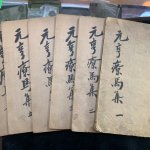 元亨療馬集 一
元亨療馬集 二
元亨療馬集
元亨療馬
元亨療馬集